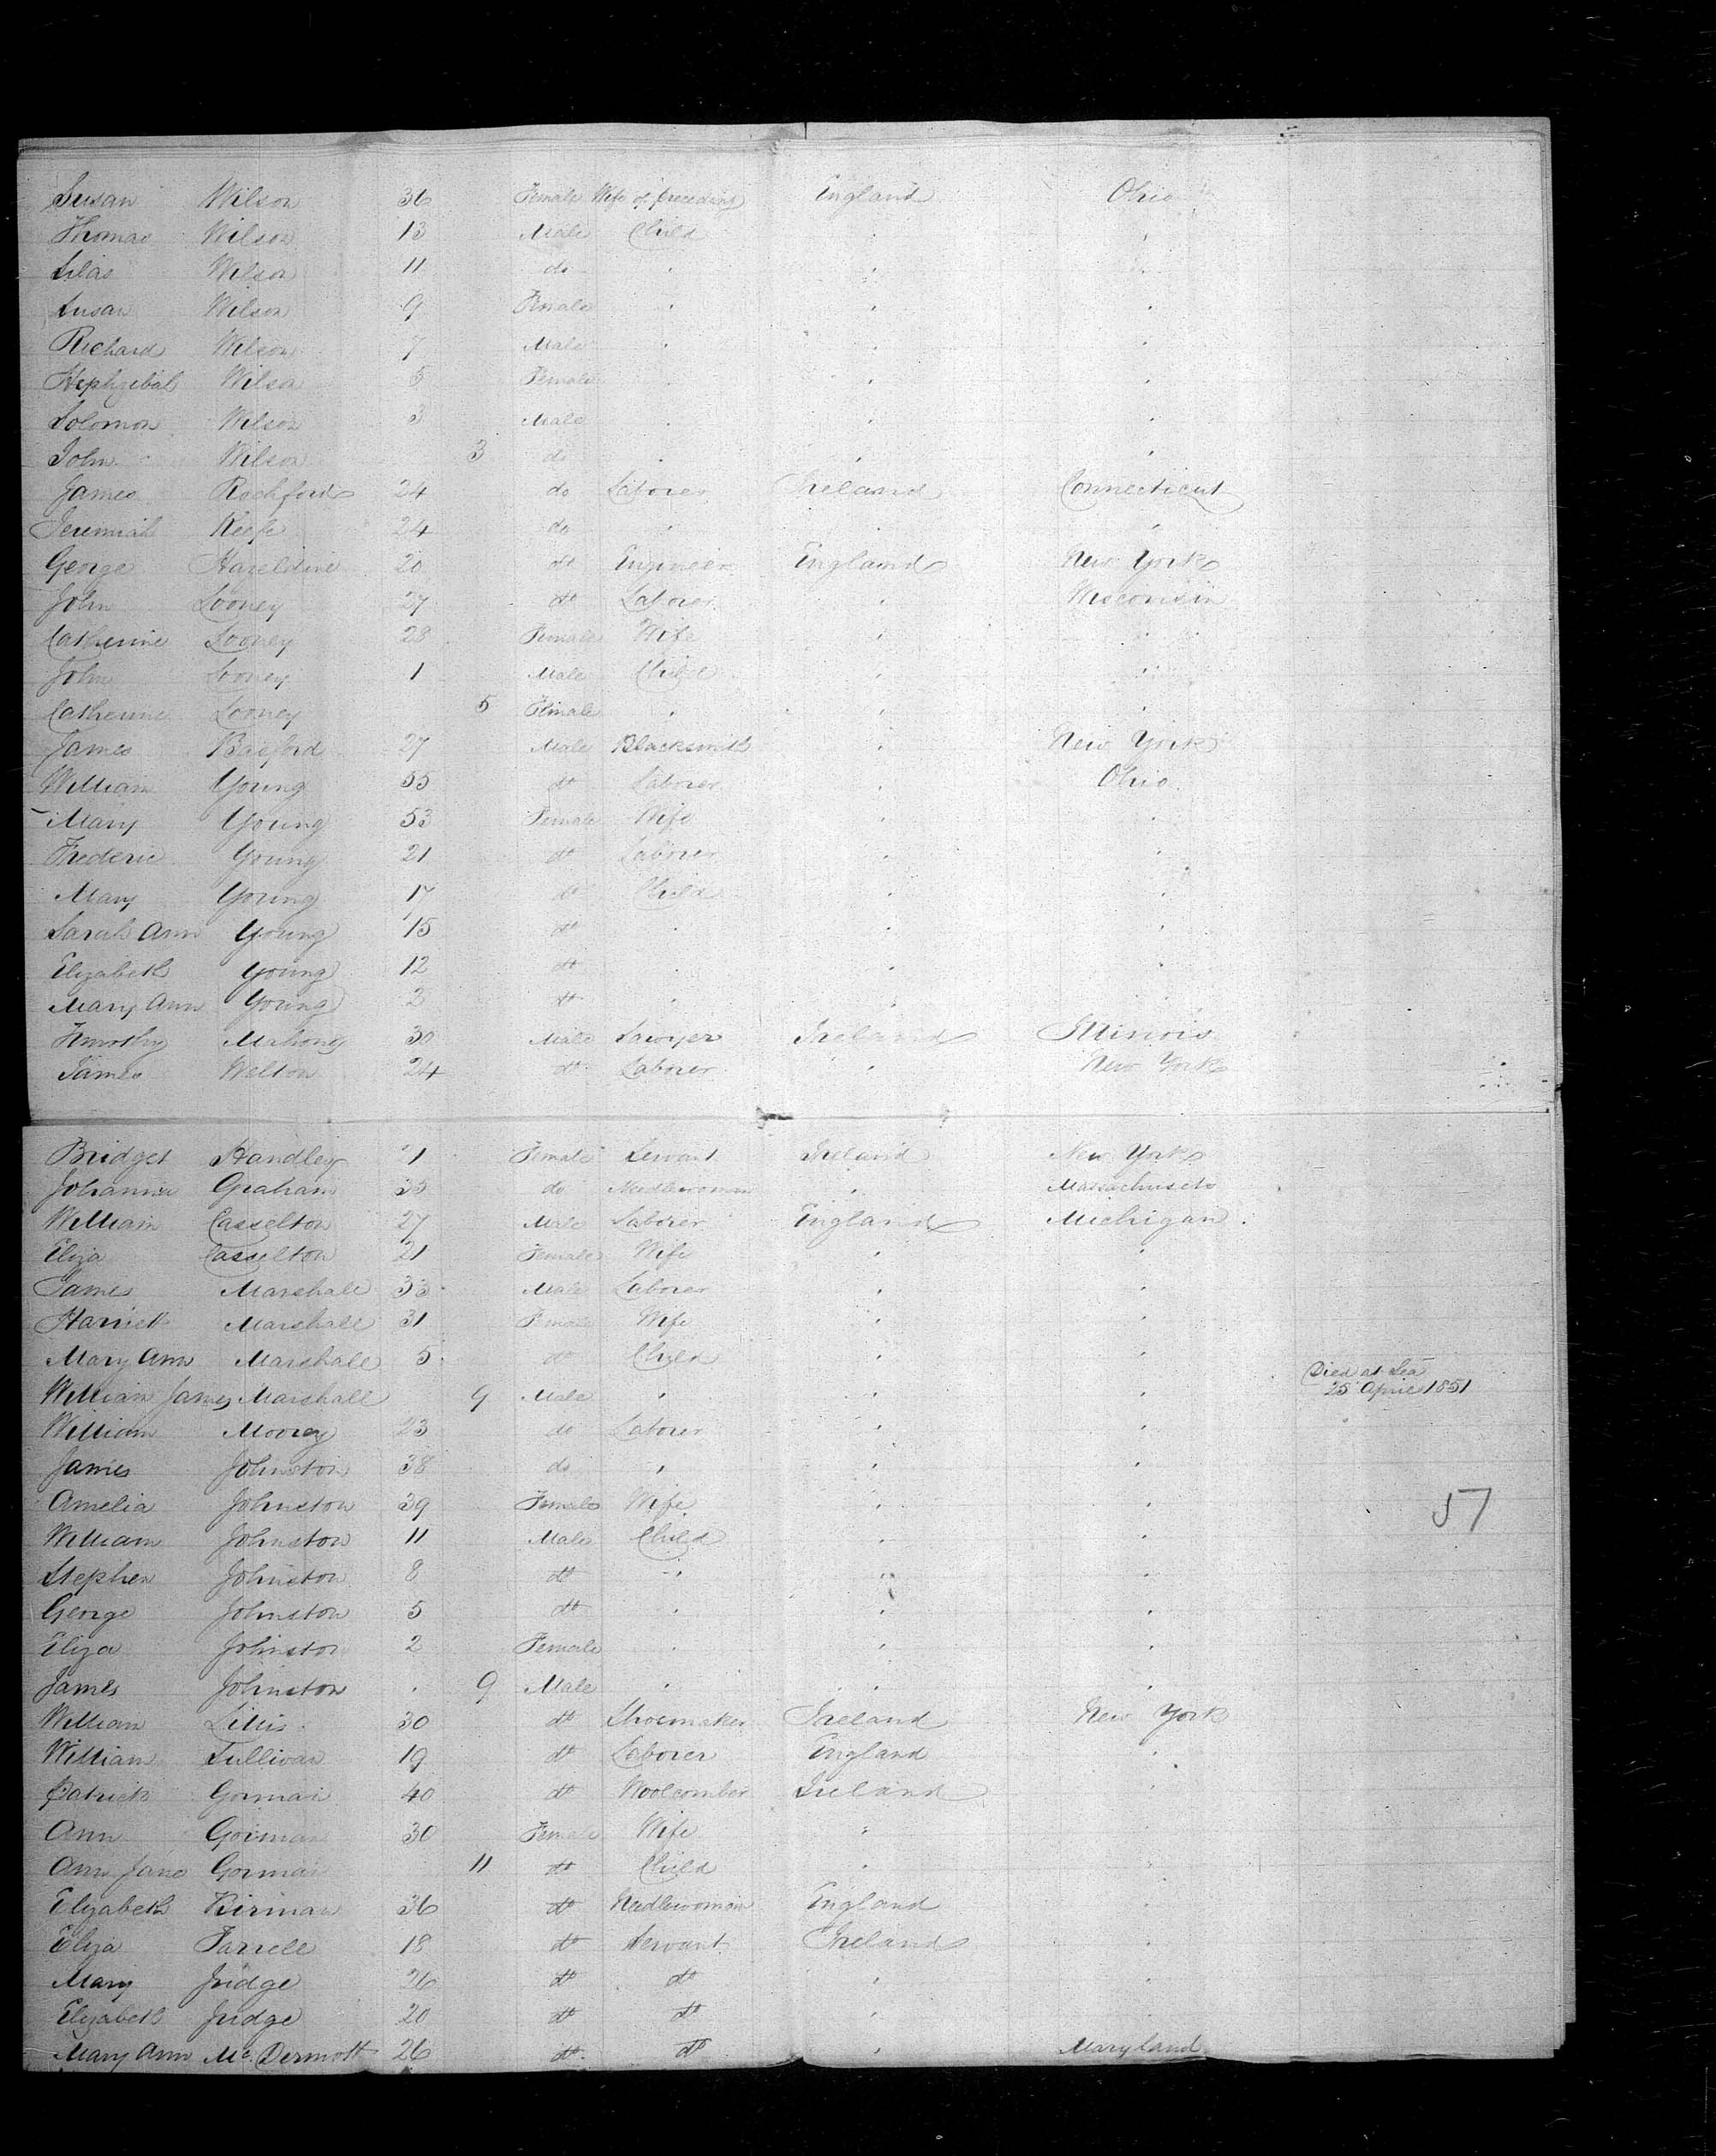 Susan Wilson 36 Female Wife of preceding England Ohio
Thomas Wilson 13 Male Child " "
Silas Wilson 11 do " " "
Susan Wilson 9 Female " " "
Richard Wilson 7 Male " " "
Hephzibah Wilson 5 Female " " "
Solomon Wilson 3 Male " " "
John Wilson 3 do " " "
James Rochford 24 do Laborer Ireland Connecticut
Jeremiah Keefe 24 do " " "
George Hareldine 20 do Engineer England New York
John Looney 27 do Laborer " Wisconsin
Catherine Looney 28 Female Wife " "
John Looney 1 Male Child " "
Catherine Looney 5 Female " " "
James Basford 27 Male Blacksmith " New York
William Young 55 do Laborer " Ohio
Mary Young 53 Female Wife " "
Frederic Young 21 do Laborer " "
Mary Young 17 do Child " "
Sarah Ann Young 15 do " " "
Elizabeth Young 12 do " " "
Mary Ann Young 2 do " " "
Timothy Mahony 30 Male Sawyer Ireland Illinois
James Welton 24 do Laborer " New York
Bridget Handley 21 Female Servant Ireland New York
Johanna Graham 33 do Needlewoman " Massachusets
William Casselton 27 Male Laborer England Michigan
Eliza Casselton 21 Female Wife " "
James Marshall 33 Male Laborer " "
Harriett Marshall 31 Female Wife " "
Mary Ann Marshall 5 do Child " "
William James Marshall 9 Male " " " Died at Sea 25 April 1851
William Moorey 23 do Laborer " "
James Johnston 38 do " " "
Amelia Johnston 39 Female Wife " "
William Johnston 11 Male Child " "
Stephen Johnston 8 do " " "
George Johnston 5 do " " "
Eliza Johnston 2 Female " " "
James Johnston 9 Male " " "
William Lillis 30 do Shoemaker Ireland New York
William Sullivan 19 do Laborer England "
Patrick Gorman 40 do Woolcomber Ireland "
Ann Gorman 30 Female Wife " "
Ann Jane Gorman 11 do Child " "
Elizabeth Kirman 36 do Needlewoman England "
Eliza Farrell 18 do Servant Ireland "
Mary Judge 26 do do " "
Elizabeth Judge 20 do do " "
Mary Ann Mc Dermott 26 do do " Maryland
57